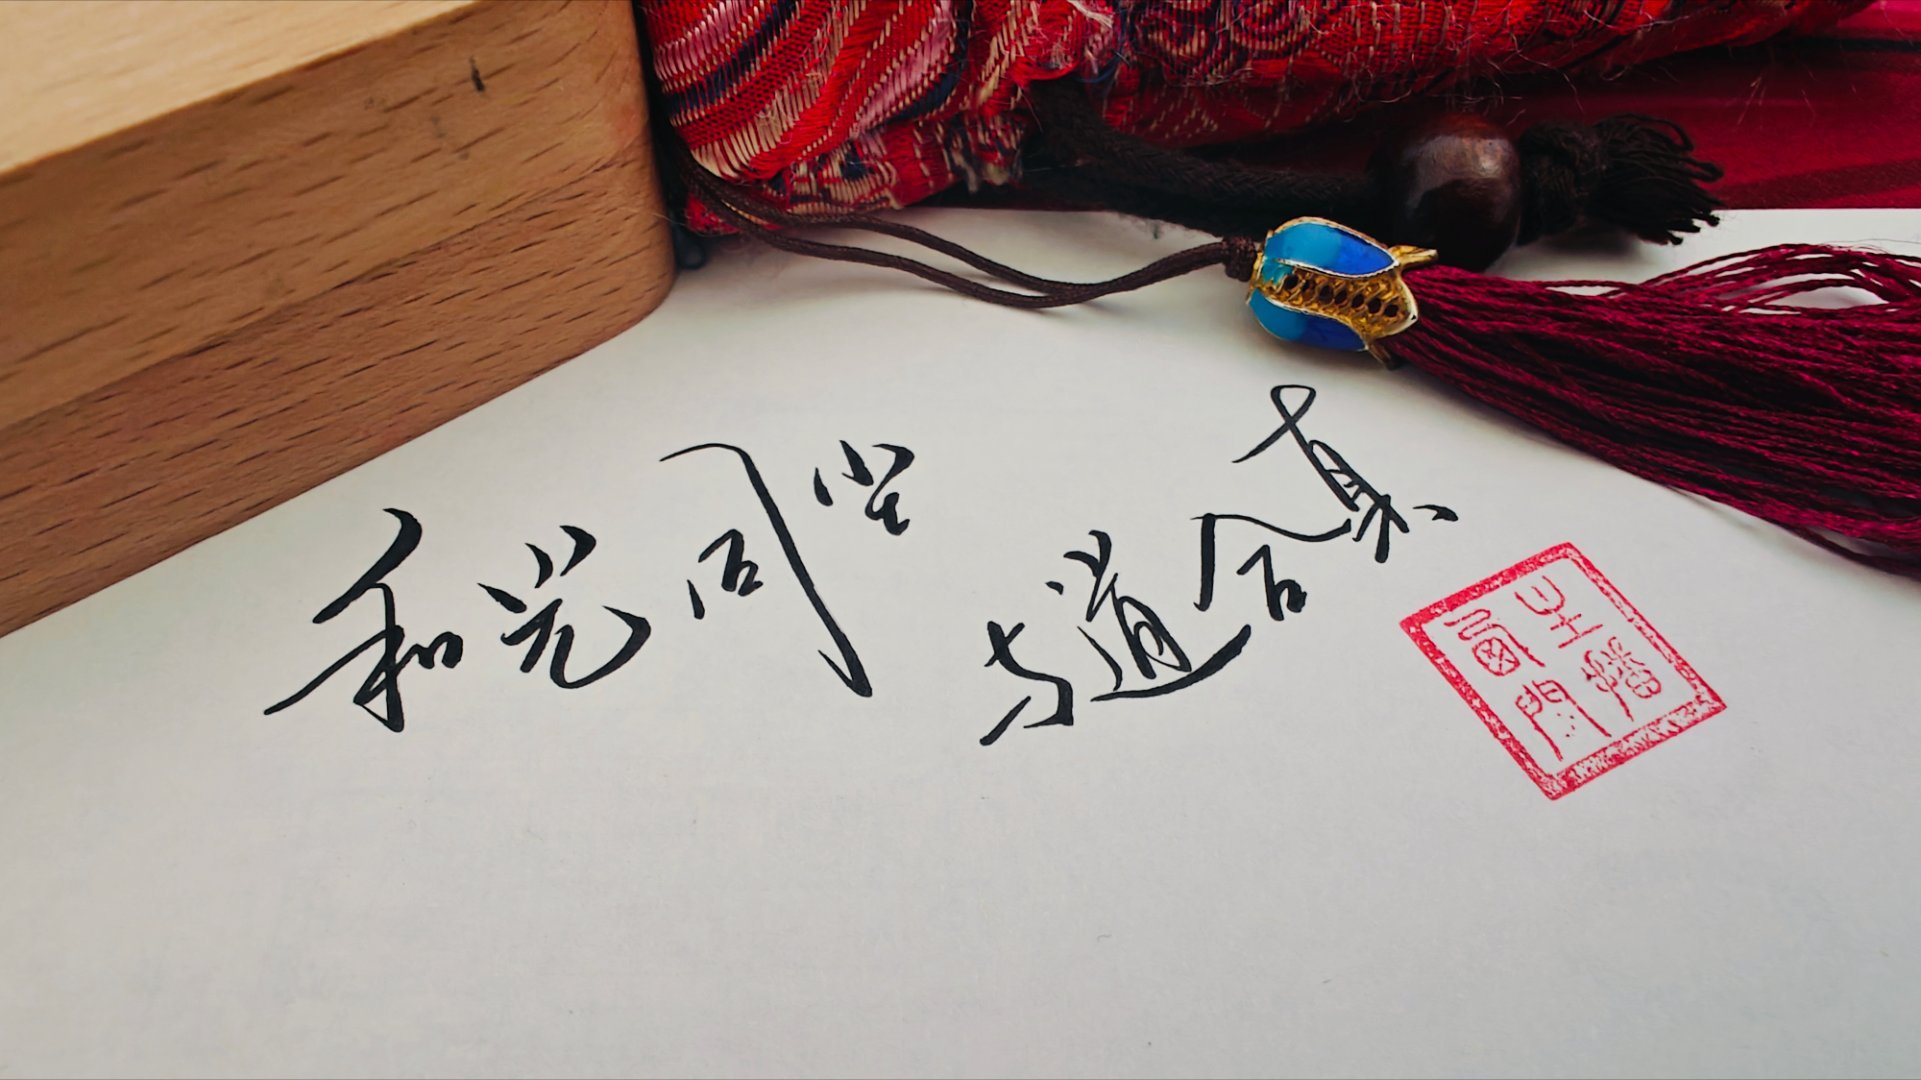 和光同尘 与道合真